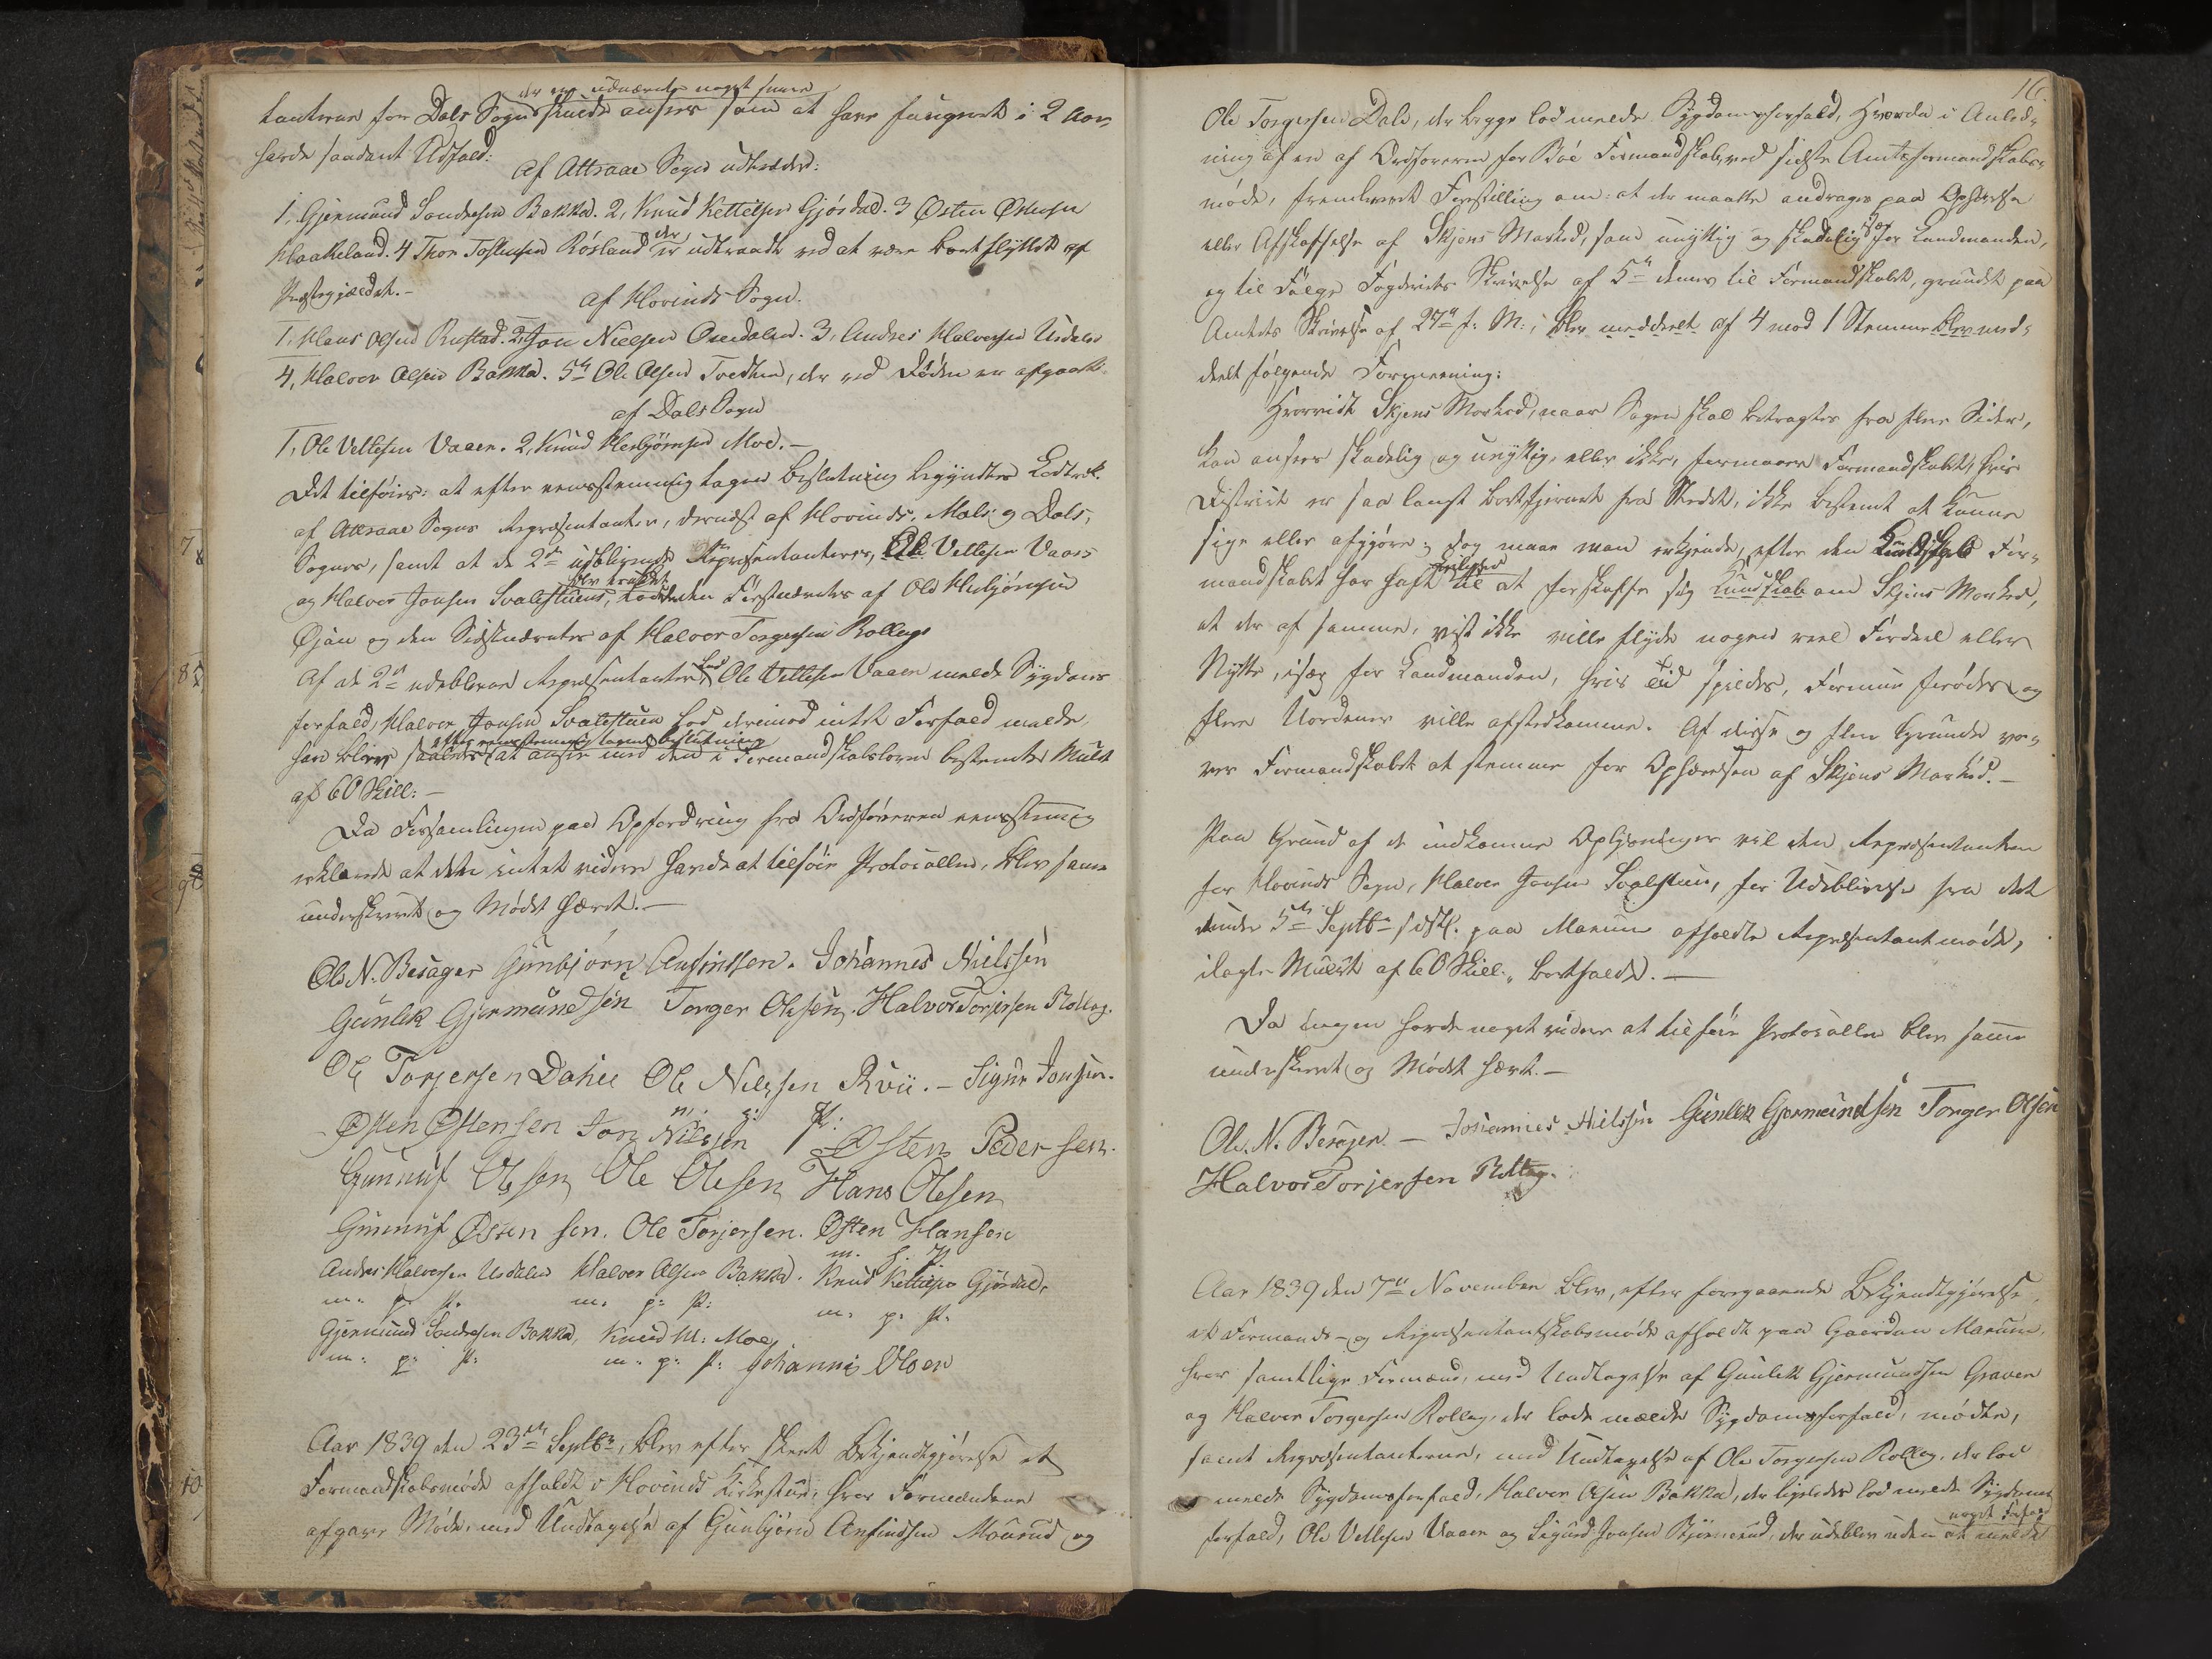 der ere udnævnte noget senere
tanterne for Dals Sogn skulde ansees som at have fungeret i 2 Aar,
havde saadant Udfald:
Af Attraae Sogn udtræder:
1, Gjermund Sondresen Bakka. 2, Knud Kettilsen Gjørdal. 3 Østen Østensen
Haakeland. 4 Thor Tostensen Røsland der er udtraadt ved at være bortflyttet af
Præstegjældet.-
af Hovinds Sogn.
1, Hans Olsen Rustad. 2, Jon Nielsen Ourdalen. 3, Andres Halvorsen Usdalen
4, Halvor Olsen Bakka. 5te Ole Olsen Tvedten, der ved Døden er afgaaet.
af Dals Sogn
1, Ole Vetlesen Vaaer. 2, Knud Herbjørnsen Moe.-
Det tilføies: at efter eensstemmig tagen Beslutning begyndtes Lodtræk.
af Attraae Sogns Repræsentanter, dernæst af Hovinds, Mæls og Dals,
Sogner, samt at de 2de udeblivende Repræsentanteres, Ole Vetlesen Vaaers
og Halvor Jonsen Svalestuens, blev trukket den Førstnævntes af Ole Herbjørnsen
Øjan og den Sidstnævntes af Halvor Torgersen Rollag
Af de 2de udeblevne Repræsentanter lod Ole Vetlesen Vaaer melde Sygdoms
forfald, Halvor Jonsen Svalestuen lod derimod intet Forfald melde,
han bliver saaledes efter eensstemmig tagen Beslutning at ansee med den i Formandskabsloven bestemte Mulct
af 60 Skill: -
Da Forsamlingen paa Opfordring fra Ordføreren eensstemmig
erklærede at dette intet videre havde at tilføie Protocollen, blev samme
underskrevet og Mødet hævet.-
Ole N. Besager Gunbjørn Anfindsen. Johannes Nielssen
Gunlek Gjermundsen Torger Olesen. Halvor Torjersen Rollag.
Ole Torjersen Dahle Ole Nielssen Rvii. - Sigur Jonsen.
Østen Østensen Jon Nilssen Østen Pedersen.
Gunnuf Olesen Ole Olesen Hans Olesen
Gunnuf Østensen. Ole Torjersen. Østen Hansen
Andres Halvorsen Usdalen Halvor Olsen Bakka. Knud Kettilsen Gjørdal,
m. p. P. m. p: P: m. p. P.
Gjermund Sondresen Bakka, Knud H: Moe,
m: p: P: m. p: P: Johannis Olsen
Aar 1839 den 23de Septbr, blev efter skeet Bekjendtgjørelse et
Formandskabsmøde afholdt i Hovinds Kirkestue, hvor Formændene
afgave Møde, med Undtagelse af Gunbjørn Anfindsen Mourud og
16.
Ole Torgersen Dale, der begge lod melde Sygdomsforfald, Hvorda i Anled-
ning af en af Ordføreren for Boe Formandskab, ved sidste Amtsformandskabs-
møde, fremlevert Forestilling om: at der maatte andrages paa Ophævelse
eller Afskaffelse af Skjens Marked, som unyttig og skadelig især for Landmanden,
og til Følge Fogderiets Skrivelse af 5te dennes til Formandskabet, grundet paa
Amtets Skrivelse af 27de f: M:, blev meddeelt af 4 mod 1 Stemme blev med-
deelt følgende Formeening:
Hvorvidt Skjens Marked, naar Sagen skal betragtes fra flere Sider,
kan ansees skadelig og unyttig, eller ikke, formaaer Formandskabet, hvis
District er saa langt bortfjernet fra Stedet, ikke bestemt at kunne
sige eller afgjøre; dog maae man erkjende, efter den Kundskab For-
mandskabet har havt Leilighed til at forskaffe sig Kundskab om Skjens Marked,
at der af samme, vist ikke ville flyde nogen reel Fordeel eller
Nytte, især for Landmanden, hvis Tid spildes, Formue forødes og
flere Uordener ville afstedkomme. Af disse og flere Grunde vo-
ver Formandskabet at stemme for Ophævelsen af Skjens Marked.-
Paa Grund af de indkomne Oplysninger vil den Repræsentanten
for Hovinds Sogn, Halvor Jonsen Svalestuen, for Udeblivelse fra det
under 5te Septbr sidstl. paa Marum afholdte Repræsentantmøde,
ilagte Mulct af 60 Skill:, bortfalde.-
Da Ingen havde noget videre at tilføie Protocollen blev samme
underskrevet og Mødet hævet.-
Ole. N. Besager - Johannes Nielssen Gunlek Gjermundsen Torger Olsen
Halvor Torjersen Rollag.
Aar 1839 den 7de November blev, efter foregaaende Bekjendtgjørelse,
et Formands- og Repræsentantskabsmøde afholdt paa Gaarden Marum,
hvor samtlige Formænd, med Undtagelse af Gunlek Gjermundsen Graver
og Halvor Torgersen Rollag, der lode melde Sygdomsforfald, mødte,
samt Repræsentanterne, med Undtagelse af Ole Torgersen Rollag, der lod
melde Sygdomsforfald, Halvor Olsen Bakka, der ligeledes lod melde Sygdoms
forfald, Ole Vetlesen Vaaer og Sigurd Jonsen Bjørnerud, der udeblev uden at melde noget Forfald